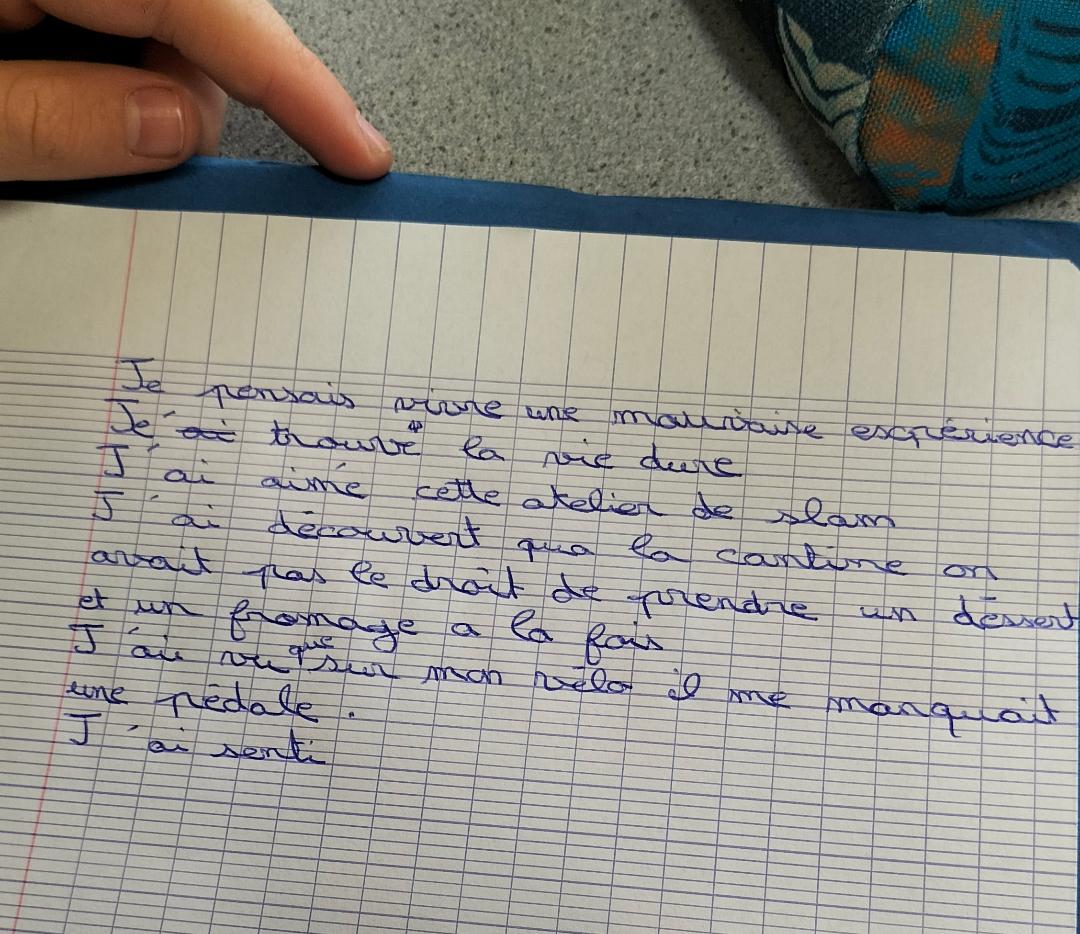 Je pensais vivre une mauvaise expérience
Je trouve la vie dure
J'ai aimé cette atelier de slam
J'ai découvert qua la cantine on
avait pas le droit de prendre un déssert
et un fromage a la fois
J'ai vu que sur mon vélo il me manquait
une pédale.
J'ai senti